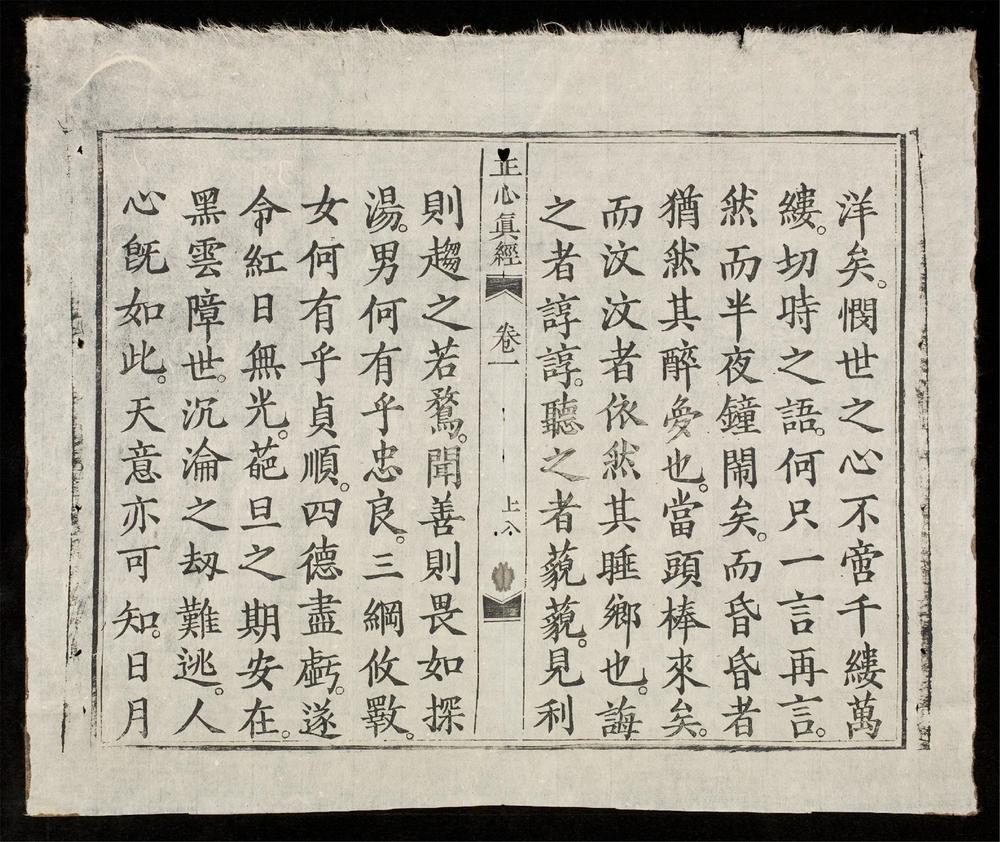 洋矣。憫世之心不啻千縷萬
縷。切時之語。何只一言再言。
然而半夜鐘鬧矣。而昏昏者
猶然其醉夢也。當頭棒來矣。
而汶汶者依然其睡鄉也。誨
之者諄諄。聽之者藐藐。見利
正心眞經
卷一
上
則趨之若鶩。聞善則畏如探
湯。男何有乎忠良。三綱攸斁。
女何有乎貞順。四德盡虧。遂
令紅日無光。葩旦之期安在。
黑雲障世。沉淪之刼難逃。人
心旣如此。天意亦可知。日月